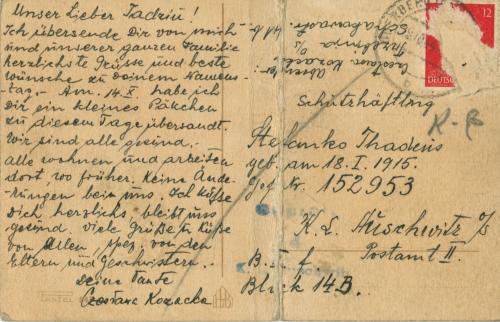 Unser Lieber Tadziu!
Ich übersende Dir von mich
und unserer ganzen Familie
herzlichste Grüsse und beste
wünsche zu Deinem Namens-
tag.- Am. 14.X. habe ich
Dir ein kleines Päkchen
zu diesem Tage übersandt.
Wir sind alle gesund.
alle wohnen und arbeiten
dort, wo früher. Keine Ände-
rungen bei uns. Ich küße
Dich, herzlichs, bleibt uns
gesund. viele Grüße u Küße
von Allen, spez. von den
Eltern und Geschwistern.-
Deine Tante
Czesława Kozacka
Absender:
Czesława Kozacka
12
DEUTSCH
Schutzhäftling
K-B
Stefanko Thadeus
geb. am 18. I. 1915.
Gef Nr. 152953
K. L. Auschwitz 1/s
Postamt II.
B. II. f
Block 14B.